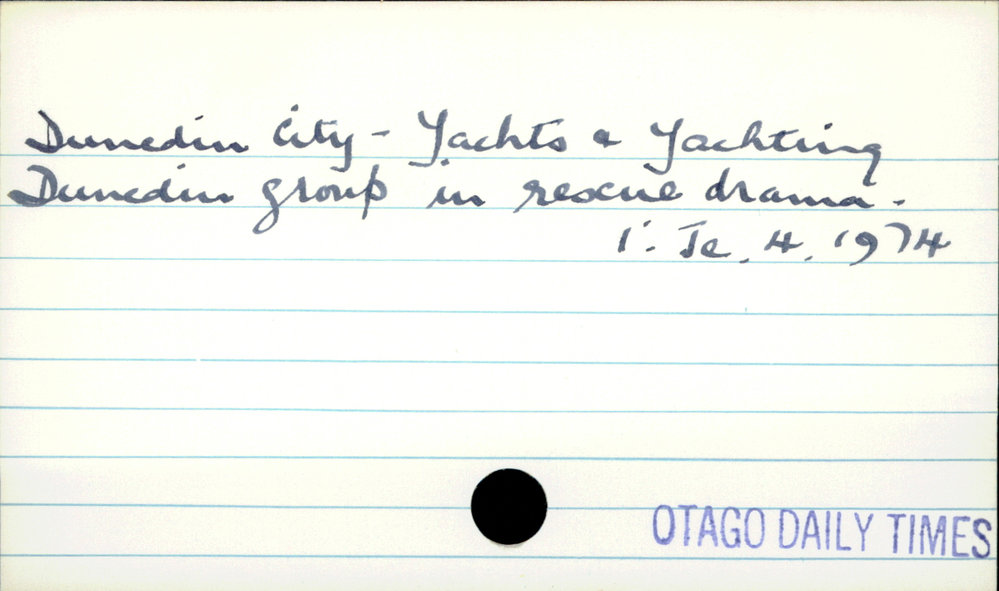 Dunedin City - Yachts & Yachting
Dunedin group in rescue drama.
1: Je. 4. 1974
OTAGO DAILY TIMES